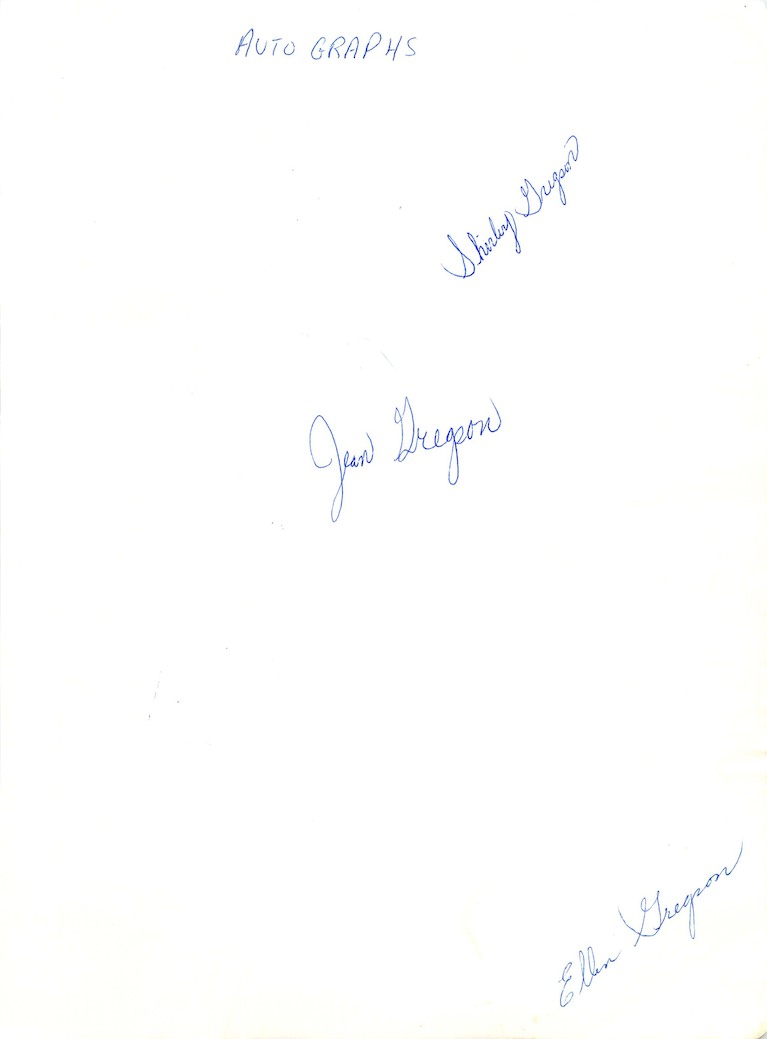 AUTOGRAPHS
Shirley Gregson
Jean Gregson
Ellen Gregson